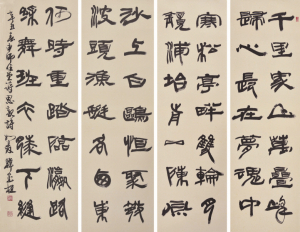 千里家山萬疊峰
歸心長在夢魂中
寒松亭畔雙輪月
鏡浦臺前一陣風
沙上白鷗恒聚散
波頭漁艇每西東
何時重踏臨瀛路
綵舞斑衣膝下縫
申師任堂詩思親詩